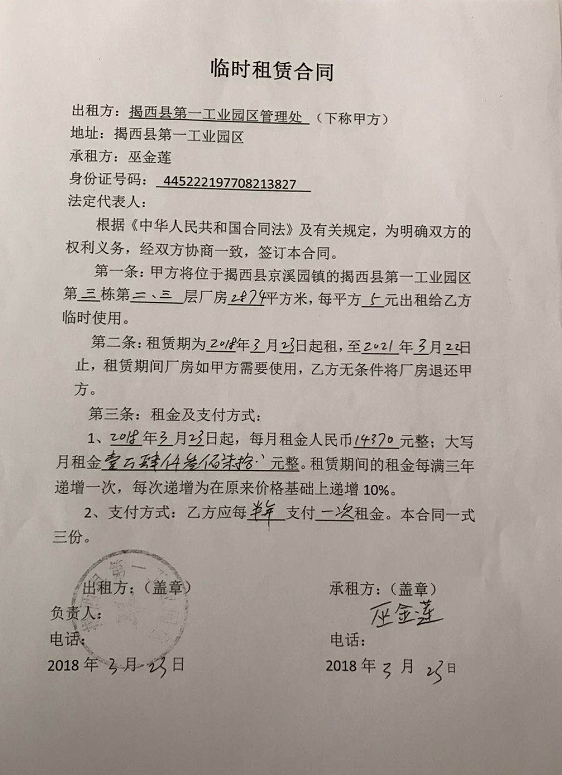 临时租赁合同
出租方：揭西县第一工业园区管理处（下称甲方）
地址：揭西县第一工业园区
承租方：巫金莲
身份证号码：445222197708213827
法定代表人：
根据《中华人民共和国合同法》及有关规定，为明确双方的
权利义务，经双方协商一致，签订本合同。
第一条：甲方将位于揭西县京溪园镇的揭西县第一工业园区
第三栋第二、三层厂房2874平方米，每平方5元出租给乙方
临时使用。
第二条：租赁期为2018年3月23日起租，至2021年3月22日
止，租赁期间厂房如甲方需要使用，乙方无条件将厂房退还甲
方。
第三条：租金及支付方式：
1、2018年3月23日起，每月租金人民币14370元整；大写
月租金壹万肆仟叁佰柒拾元整。租赁期间的租金每满三年
递增一次，每次递增为在原来价格基础上递增10%。
2、支付方式：乙方应每半年支付一次租金。本合同一式
三份。
出租方：（盖章） 承租方：（盖章）
负责人： 巫金莲
电话： 电话：
2018年3月23日 2018年3月23日